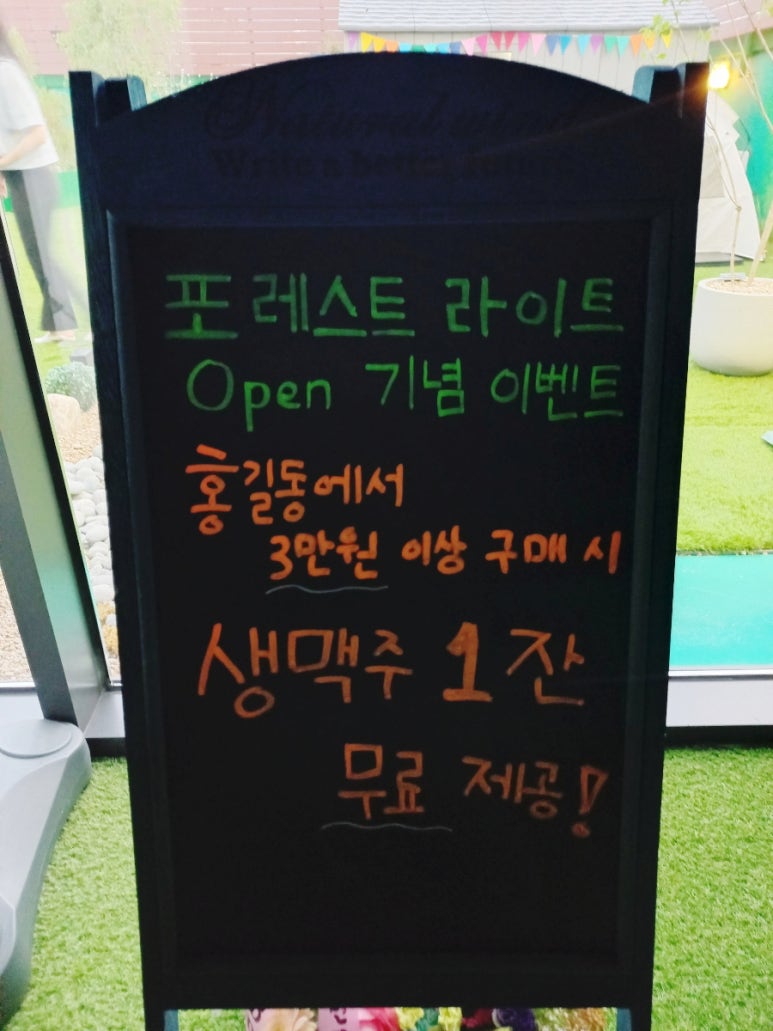 Natural wind
Write a better future
포레스트 라이트
Open 기념 이벤트
홍길동에서
3만원 이상 구매 시
생맥주 1잔
무료 제공!